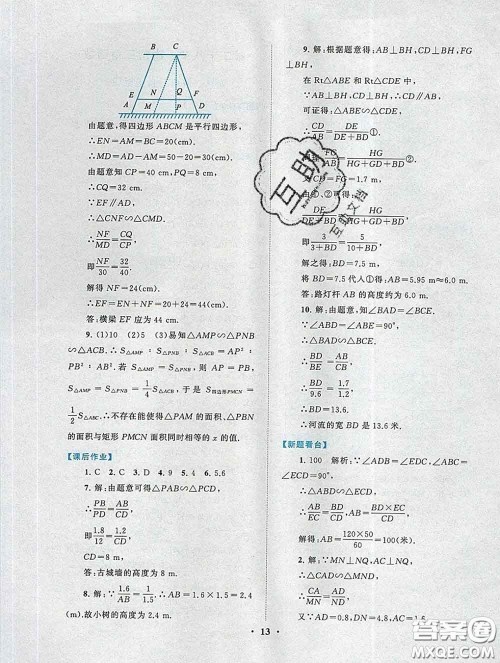 B C
E N Q F
A M P D
由题意,得四边形 ABCM 是平行四边形,
∴EN=AM=BC=20(cm).
∴MD=AD-AM=50-20=30(cm).
由题意知 CP=40 cm,PQ=8 cm,
∴CQ=32 cm.
∵EF∥AD,
∴△CNF∽△CMD.
∴NF/MD=CQ/CP,
即NF/30=32/40.
解得 NF=24(cm).
∴EF=EN+NF=20+24=44(cm).
答:横梁 EF 应为 44 cm.
9.(1)10 (2)5 (3)易知△AMP∽△PNB
∽△ACB.∴S△AMP∶S△PNB∶S△ACB=AP²∶
PB²∶AB².若 S△AMP=S△PNB,则 AP=PB,
S△AMP=S△PNB=1/4 S△ACB,于是 S四边形PMCN=
1/2 S△ABC.∴不存在能使得△PAM 的面积、△PBN
的面积与矩形 PMCN 面积同时相等的 x 的值.
【课后作业】
1.C 2.C 3.D 4.9 5.4 6.5.6
7.解:由题意可得△PAB∽△PCD,
∴PB/PD=AB/CD,
即1.8/12=1.2/CD.
CD=8 m,
答:古城墙的高度为 8 m.
8.解:∵1.6/AB=1/1.5,∴AB=1.6×1.5=2.4
(m).故小树的高度为 2.4 m.
9.解:根据题意得:AB⊥BH,CD⊥BH,FG
⊥BH,
在 Rt△ABE 和 Rt△CDE 中,
∵AB⊥BH,CD⊥BH,∴CD∥AB,
可证得:△ABE∽△CDE,
∴CD/AB=DE/DE+BD①.
HG/HG+GD+BD②.
CD=FG=1.7 m,
由①、②可得:
DE/DE+BD=HG/HG+GD+BD,
即3/3+BD=5/10+BD,
解之得:BD=7.5 m,
将 BD=7.5 代入①得:AB=5.95 m≈6.0 m.
答:路灯杆 AB 的高度约为 6.0 m.
10.解:由题意,知∠BAD=∠BCE.
∵∠ABD=∠ABE=90°,
∴△BAD∽△BCE.
∴BD/BE=AB/CB.
∴BD/9.6=1.7/1.2.
∴BD=13.6.
∴河流的宽 BD 是 13.6 米.
【新题看台】
1.100 解析:∵∠ADB=∠EDC,∠ABC=
∠ECD=90°,
∴△ABD∽△ECD,
∴AB/EC=BD/CD,AB=BD×EC/CD,
解得:AB=120×50/60=100(米).
2.解:∵MN⊥NQ,AC⊥NQ,
∴MN∥AC,
∴
又∵AD=0.8,DN=4.8,AC=1.6,
互助
互助文档
· 13 ·
答案圈
MXQE.COM